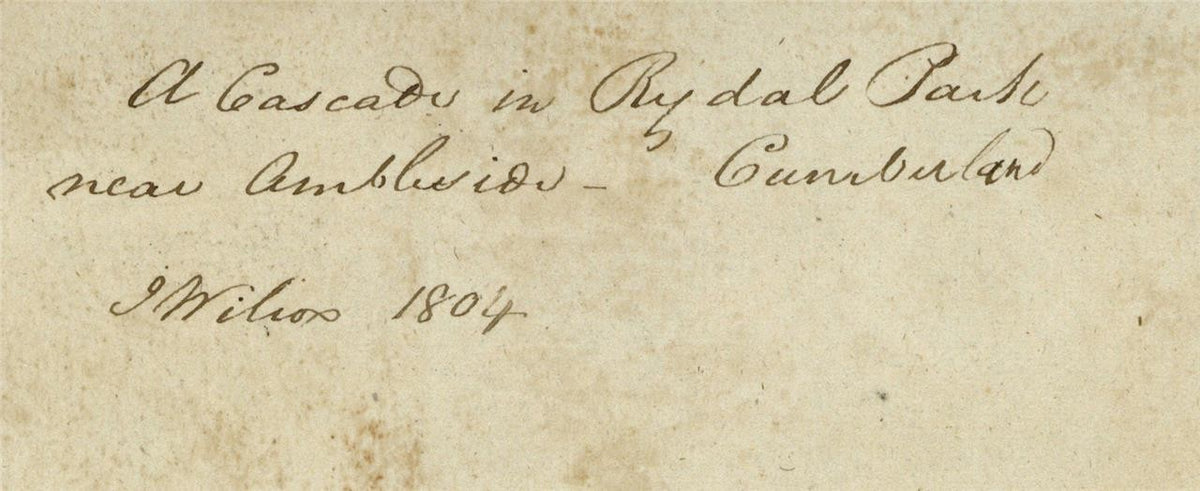 A Cascade in Rydal Park
near Ambleside - Cumberland
J Wilcox 1804